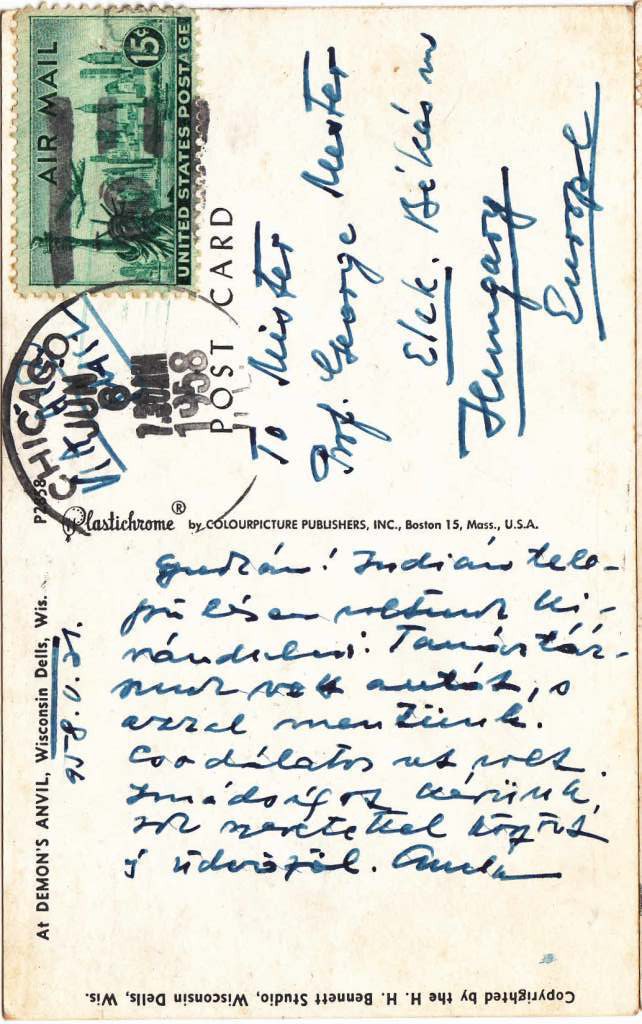 AIR MAIL
15¢
UNITED STATES POSTAGE
CHICAGO
JUN
6
7.30 AM
1958
POST CARD
To Mister
Prof. George Mester
Elek. Békés m
Hungary
Europe
P2658
Plastichrome ® by COLOURPICTURE PUBLISHERS, INC., Boston 15, Mass., U.S.A.
At DEMON'S ANVIL, Wisconsin Dells, Wis.
958. V. 31.
Indián tele-
pülésen voltunk ki-
rándulni. Tanártár-
sunk vett autót, s
azzal mentünk.
Csodálatos út volt.
Imádságot kérünk,
sok szeretettel
s üdvözöl.
Copyrighted by the H. H. Bennett Studio, Wisconsin Dells, Wis.